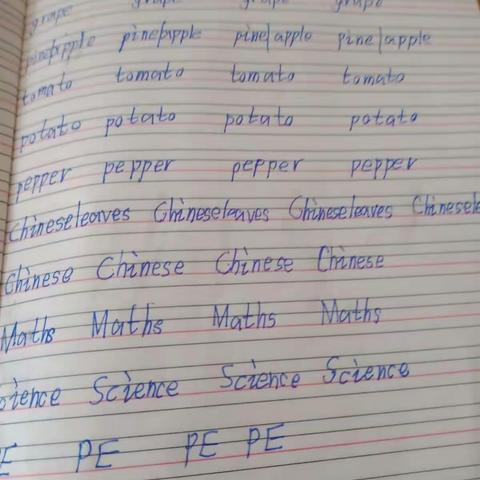 grape grape grape grape
pinepipple pinepipple pine|apple pine|apple
tomato tomato tomato tomato
potato potato potato potato
pepper pepper pepper pepper
Chineseleaves Chineseleaves Chineseleaves Chinesele
Chinese Chinese Chinese Chinese
Maths Maths Maths Maths
Science Science Science Science
PE PE PE